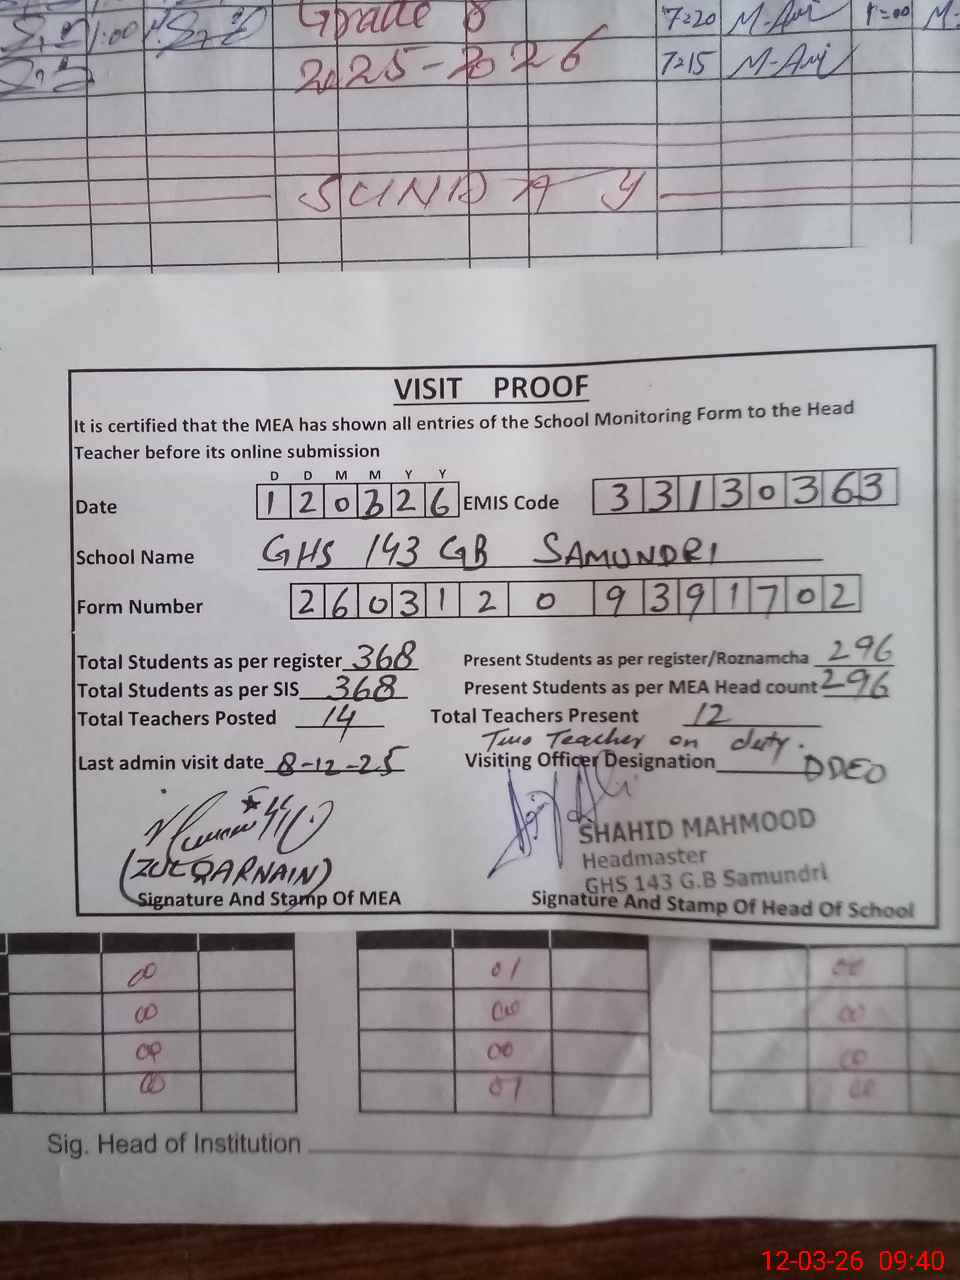 1:00
Grade 8
7=20 M-Avi 1=00 M-
2025-2026
7=15 M-Avi
SUNDAY
VISIT PROOF
It is certified that the MEA has shown all entries of the School Monitoring Form to the Head
Teacher before its online submission
D D M M Y Y
Date 120326 EMIS Code 33130363
School Name GHS 143 GB SAMUNDRI
Form Number 26031209391702
Total Students as per register 368 Present Students as per register/Roznamcha 296
Total Students as per SIS 368 Present Students as per MEA Head count 296
Total Teachers Posted 14 Total Teachers Present 12
Two Teacher on duty.
Last admin visit date 8-12-25 Visiting Officer Designation DDEO
SHAHID MAHMOOD
Headmaster
GHS 143 G.B Samundri
(ZULQARNAIN)
Signature And Stamp Of MEA Signature And Stamp Of Head Of School
00 01 00
00 00 00
00 00 00
00 01 00
Sig. Head of Institution
12-03-26 09:40